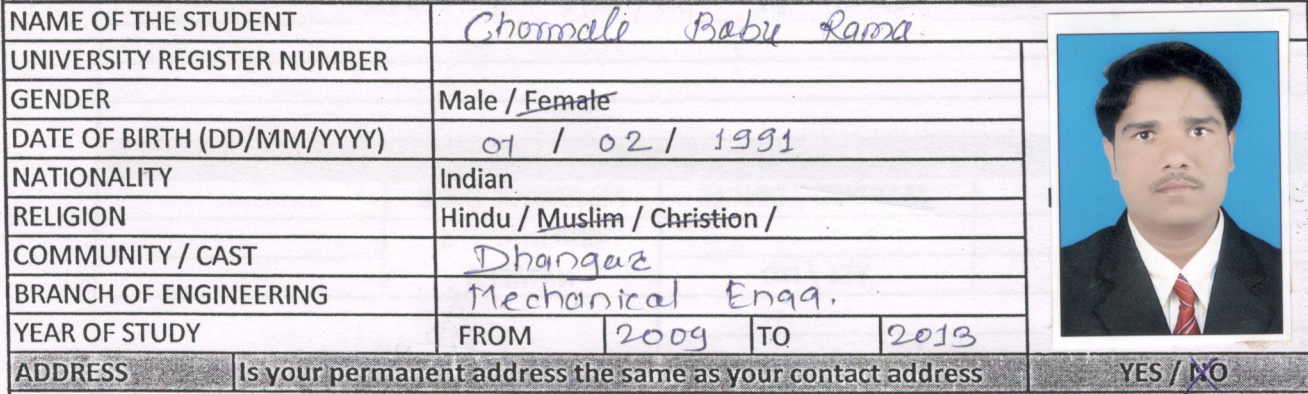 NAME OF THE STUDENT Chormale Babu Rama
UNIVERSITY REGISTER NUMBER
GENDER Male / Female
DATE OF BIRTH (DD/MM/YYYY) 01 / 02 / 1991
NATIONALITY Indian
RELIGION Hindu / Muslim / Christion /
COMMUNITY / CAST Dhangar
BRANCH OF ENGINEERING Mechanical Engg.
YEAR OF STUDY FROM 2009 TO 2013
ADDRESS Is your permanent address the same as your contact address YES / NO